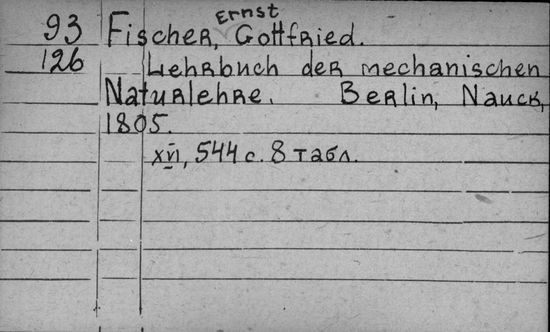 93 Fischer, Ernst Gottfried.
126 Lehrbuch der mechanischen
Naturlehre. Berlin, Nauck,
1805.
XVI, 544 с. 8 табл.